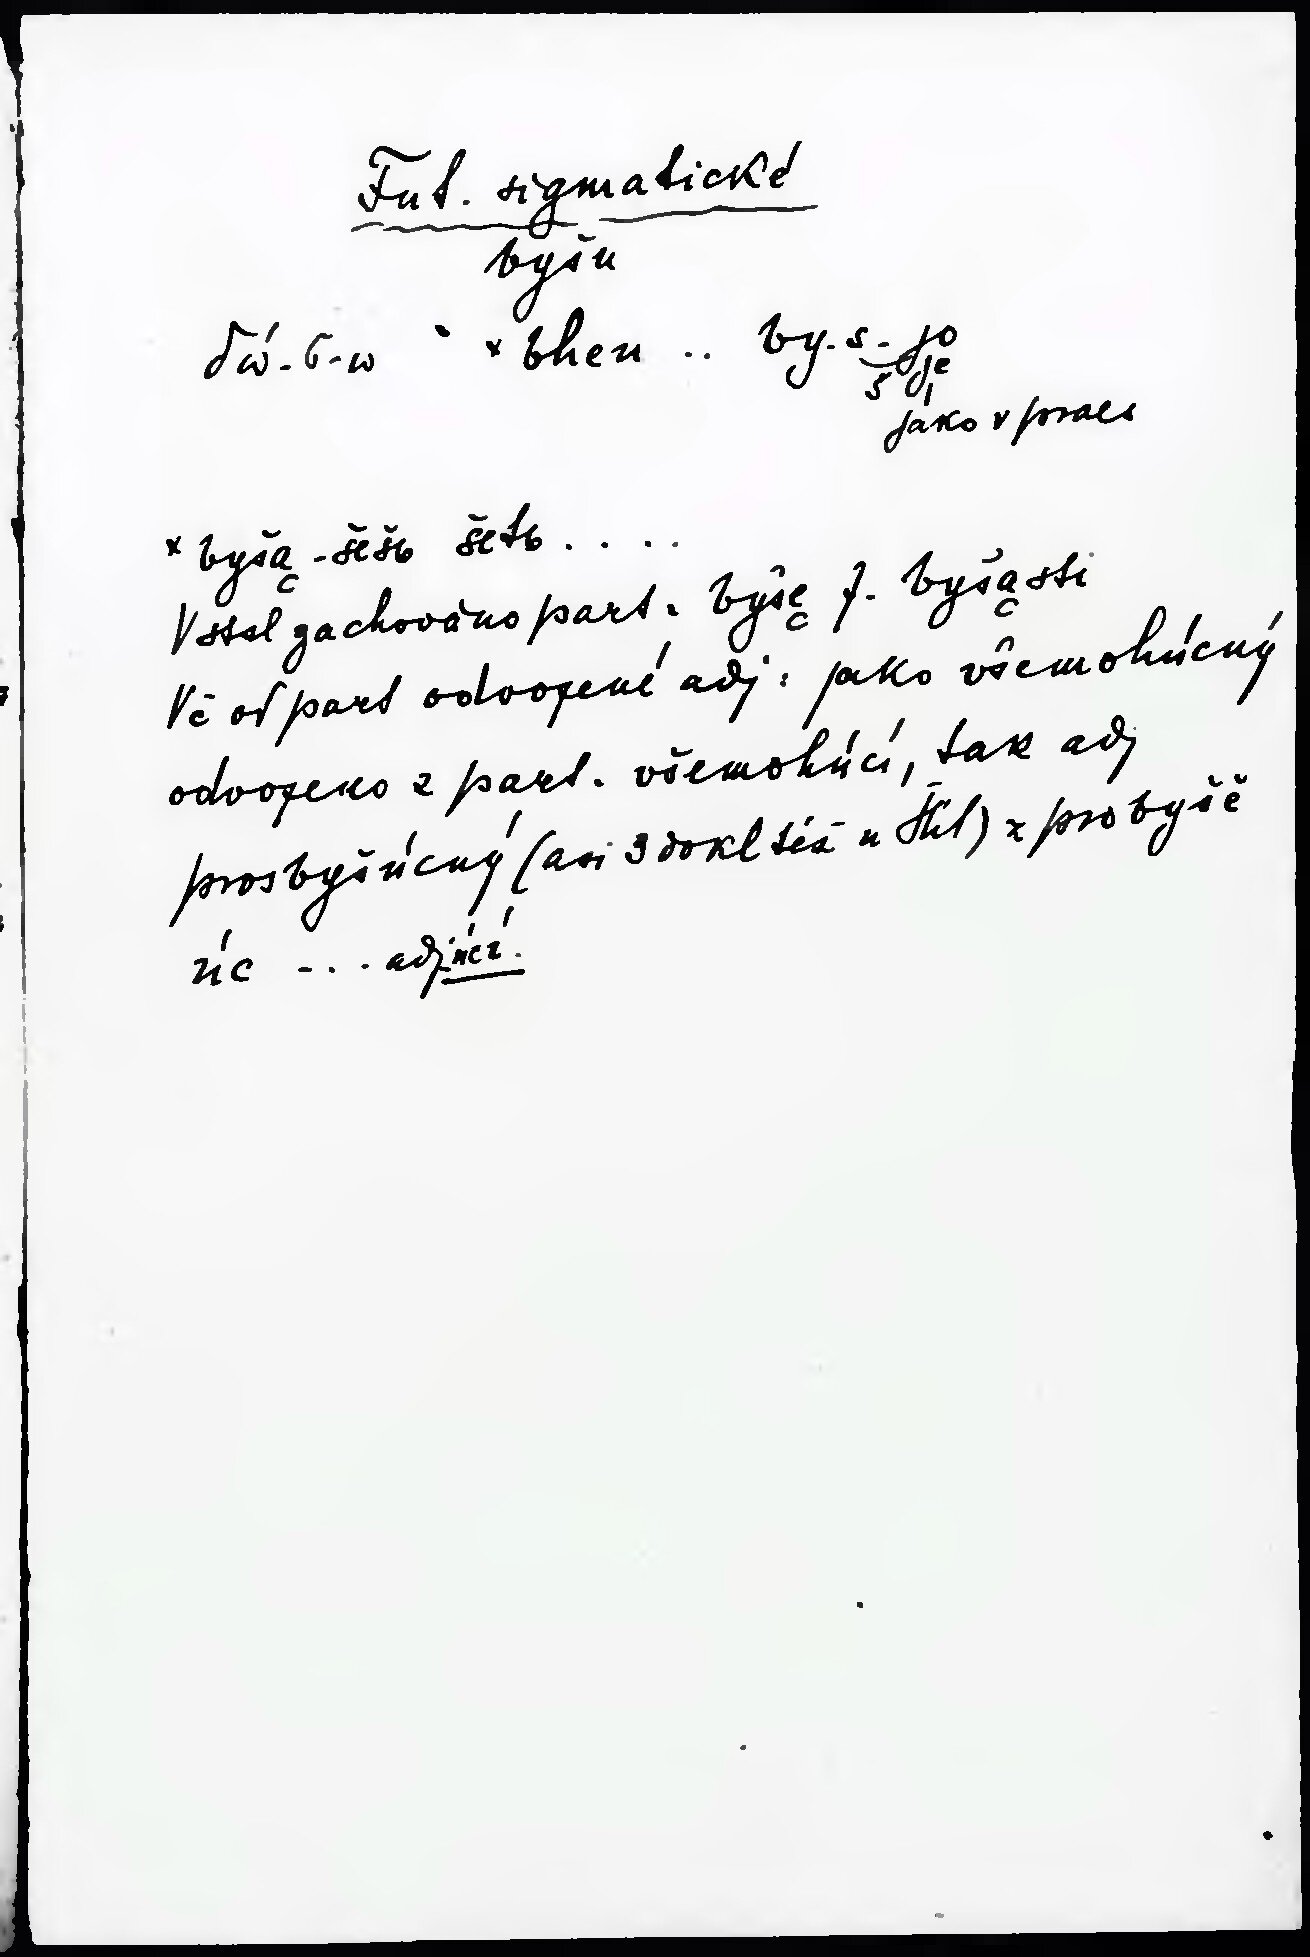 Fut. sigmatické
byšu
δώ-σ-ω * bheu .. by-s-jo
š je
jako v praes
* byšą -šěšь šetь ....
V stsl zachováno part. byšę f. byšąsti
Vč od part odvozené adj: jako všemohúcný
odvozeno z part. všemohúcí, tak adj
prosbyšúcný (asi 3 dokl též u Štít) z probyšě
úc ... adj úcí.